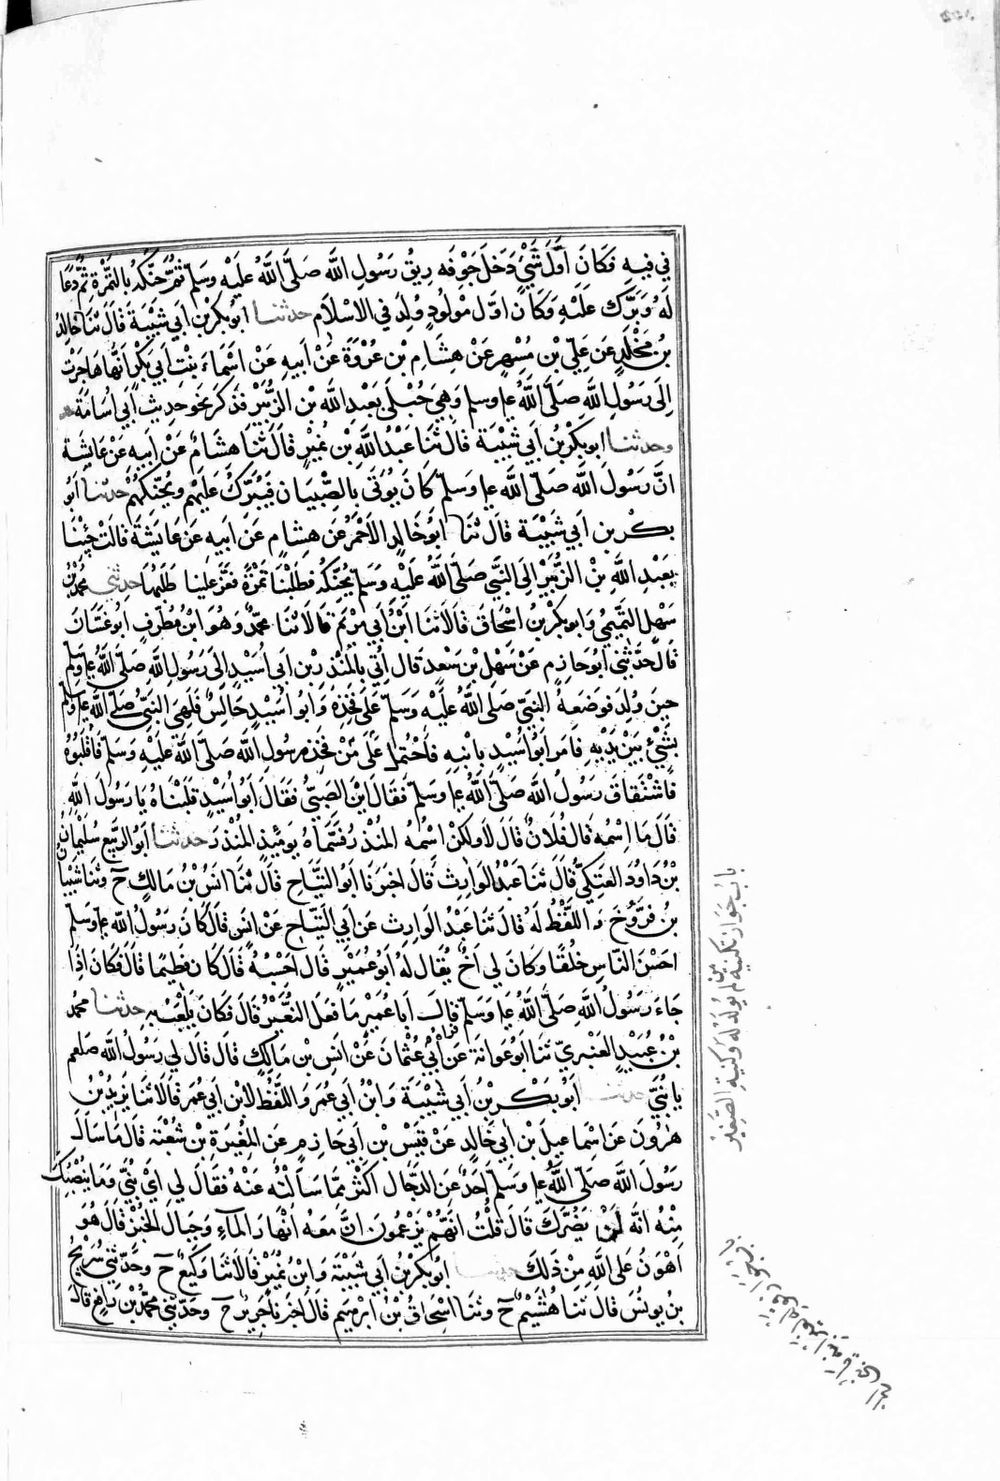 في فيه فكان اوّل شيء دخل جوفه ريق رسول الله صلى الله عليه وسلم ثم حنّكه بالتمرة ثم دعا
له وبرّك عليه وكان اوّل مولود ولد في الاسلام حدثنا ابو بكر بن ابي شيبة قال ثنا خالد
بن مخلد عن علي بن مسهر عن هشام بن عروة عن ابيه عن اسماء بنت ابي بكر انها هاجرت
الى رسول الله صلى الله ع وسلم وهي حبلى بعبد الله بن الزبير فذكر نحو حديث ابي اسامة
وحدثنا ابو بكر بن ابي شيبة قال ثنا عبد الله بن نمير قال ثنا هشام عن ابيه عن عايشة
انّ رسول الله صلى الله ع وسلم كان يوتى بالصبيان فيبرّك عليهم ويحنّكهم حدثنا ابو
بكر بن ابي شيبة قال ثنا ابو خالد الاحمر عن هشام عن ابيه عن عايشة قالت جئنا
بعبد الله بن الزبير الى النبي صلى الله عليه وسلم يحنّكه فطلبنا تمرة فعزّ علينا طلبها حدثني محمد بن
سهل التميمي وابو بكر بن اسحاق قالا ثنا ابن ابي مريم قالا ثنا محمد وهو ابن مطرف ابو غسان
قال حدثني ابو حازم عن سهل بن سعد قال اتي بالمنذر بن ابي اسيد الى رسول الله صلى الله ع وسلم
حين ولد فوضعه النبي صلى الله عليه وسلم على فخذه وابو اسيد جالس فلهى النبي صلى الله ع وسلم
بشيء بين يديه فامر ابو اسيد بابنه فاحتمل على من فخذ رسول الله صلى الله عليه وسلم فاقلبوه
فاستفاق رسول الله صلى الله ع وسلم فقال اين الصبي فقال ابو اسيد قلبناه يا رسول الله
قال ما اسمه قال فلان قال لا ولكن اسمه المنذر فسمّاه يومئذ المنذر حدثنا ابو الربيع سليمان
بن داود العتكي قال ثنا عبد الوارث قال اخبرنا ابو التياح قال ثنا انس بن مالك ح وثنا شيبان
بن فرّوخ واللفظ له قال ثنا عبد الوارث عن ابي التياح عن انس قال كان رسول الله ع وسلم
احسن الناس خلقا وكان لي اخ يقال له ابو عمير قال احسبه قال كان فطيما قال فكان اذا
جاء رسول الله صلى الله ع وسلم قال ابا عمير ما فعل النغير قال فكان يلعب به حدثنا محمد
بن عبيد العنبري ثنا ابو عوانة عن ابي عثمان عن انس بن مالك قال قال لي رسول الله صلعم
يا بنيّ حدثنا ابو بكر بن ابي شيبة وابن ابي عمر واللفظ لابن ابي عمر قالا ثنا يزيد بن
هرون عن اسماعيل بن ابي خالد عن قيس بن ابي حازم عن المغيرة بن شعبة قال ما سال
رسول الله صلى الله ع وسلم احد عن الدجّال اكثر مما سالته عنه فقال لي اي بنيّ وما ينصبك
منه انه لن يضرّك قال قلت انهم يزعمون انّ معه انهار الماء وجبال الخبز قال هو
اهون على الله من ذلك حدثنا ابو بكر بن ابي شيبة وابن نمير قالا ثنا وكيع ح وحدثني سريج
بن يونس قال ثنا هشيم ح وثنا اسحاق بن ابرهيم قال اخبرنا جرير ح وحدثني محمد بن رافع قال
باب جواز تكنية من لم يولد له وكنية الصغير